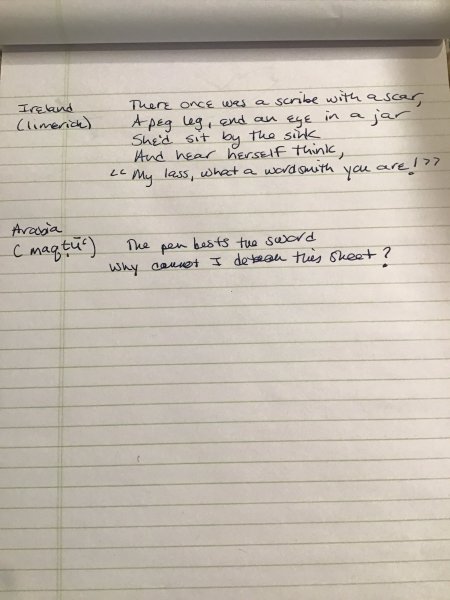 Ireland
(limerick)
There once was a scribe with a scar,
A peg leg, and an eye in a jar
She'd sit by the sink
And hear herself think,
"My lass, what a wordsmith you are!"
Arabia
(maqṭūʿ)
The pen bests the sword
Why cannot I this sheet?